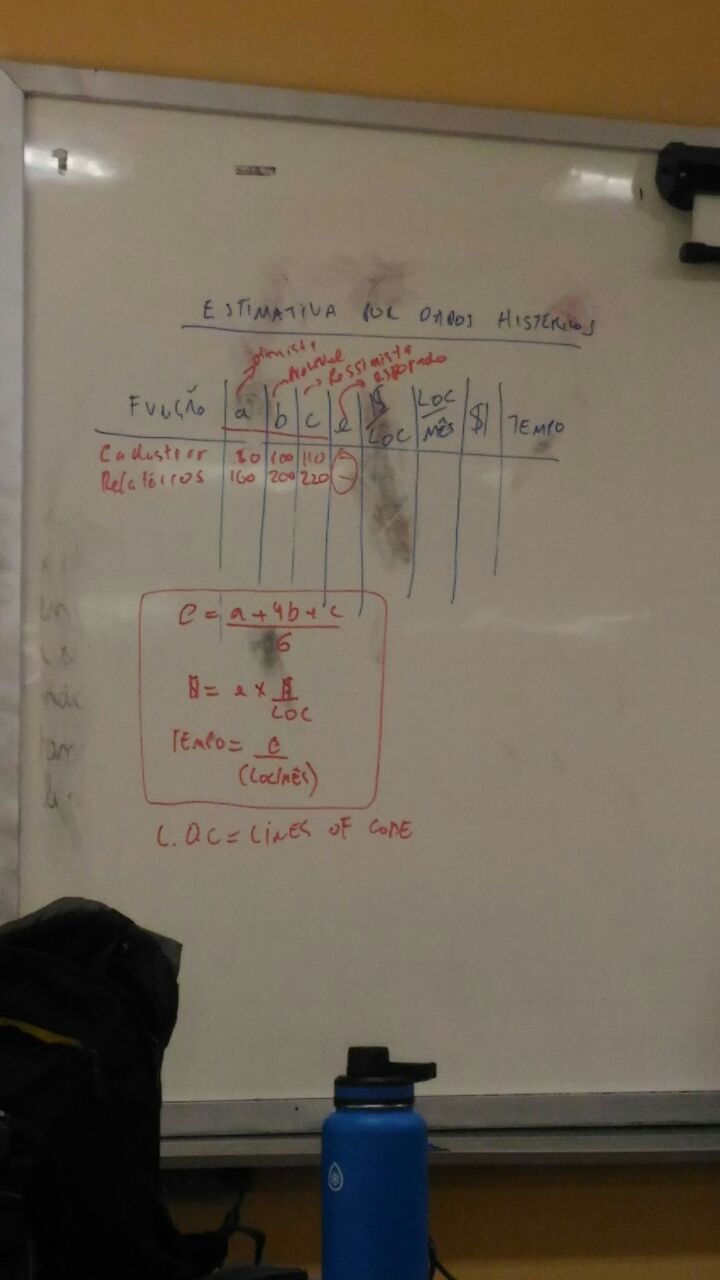 ESTIMATIVA POR DADOS HISTÓRICOS
otimista
provável
Pessimista
esperado
FUNÇÃO a b c e $/LOC LOC/MÊS $ TEMPO
Cadastrar 80 100 110
Relatórios 160 200 220
e = a + 4b + c / 6
$ = e x $ / LOC
TEMPO = e / (LOC/MÊS)
L.O.C = LINES OF CODE